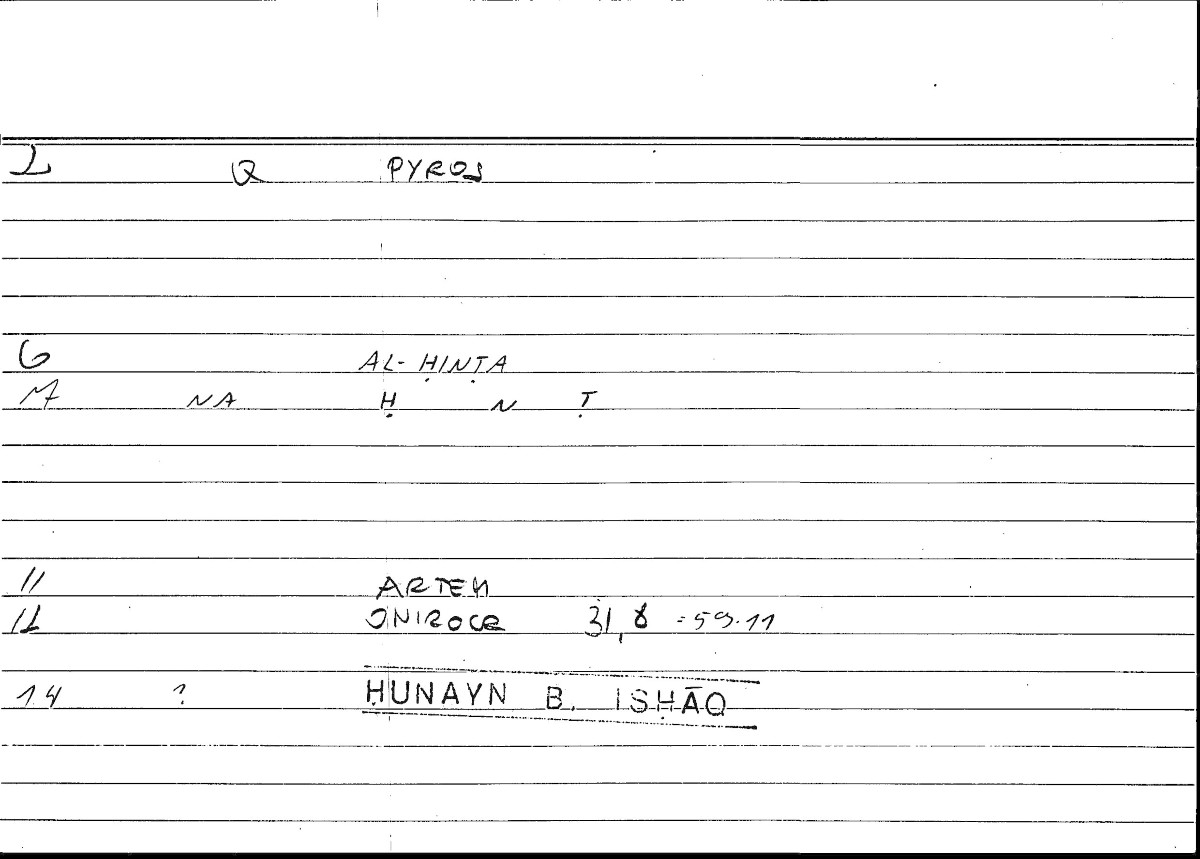 2 Q PYROS
6 AL-ḤINṬA
7 NA Ḥ N Ṭ
11 ARTEM
12 ONIROCR 31,8 = 59.11
14 ? ḤUNAYN B. ISḤĀQ